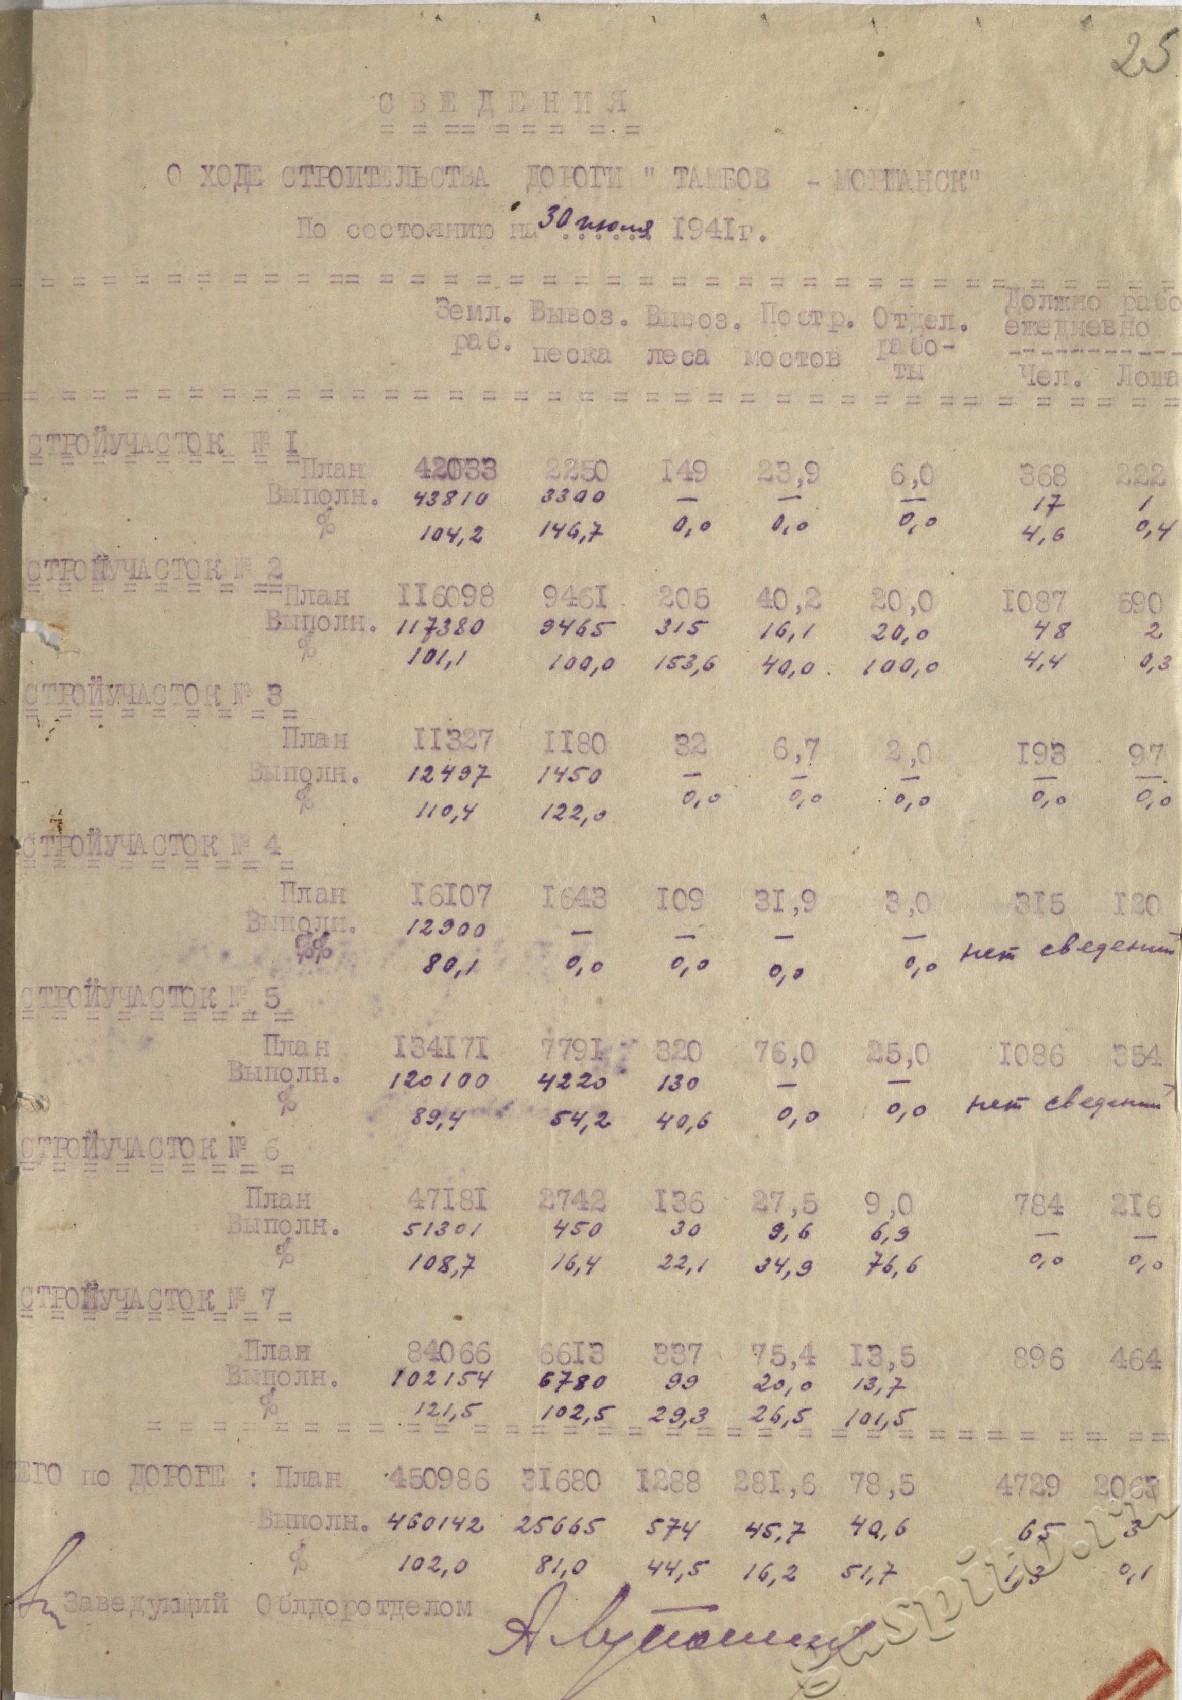 25
СВЕДЕНИЯ
О ХОДЕ СТРОИТЕЛЬСТВА ДОРОГИ "ТАМБОВ - МОРШАНСК"
По состоянию на 30 июля 1941г.
Земл. Вывоз. Вывоз. Постр. Отдел. Должно рабо
раб. песка леса мостов рабо- ежедневно
ты Чел. Лоша
СТРОЙУЧАСТОК № 1
План 42033 2250 149 23,9 6,0 368 222
Выполн. 43810 3300 — — — 17 1
% 104,2 146,7 0,0 0,0 0,0 4,6 0,4
СТРОЙУЧАСТОК № 2
План 116098 9461 205 40,2 20,0 1087 590
Выполн. 117380 9465 315 16,1 20,0 48 2
% 101,1 100,0 153,6 40,0 100,0 4,4 0,3
СТРОЙУЧАСТОК № 3
План 11327 1180 32 6,7 2,0 193 97
Выполн. 12497 1450 — — — — —
% 110,4 122,0 0,0 0,0 0,0 0,0 0,0
СТРОЙУЧАСТОК № 4
План 16107 1643 109 31,9 3,0 315 120
Выполн. 12900 — — — — нет сведений
%% 80,1 0,0 0,0 0,0 0,0
СТРОЙУЧАСТОК № 5
План 134171 7791 320 76,0 25,0 1086 354
Выполн. 120100 4220 130 — — нет сведений
% 89,4 54,2 40,6 0,0 0,0
СТРОЙУЧАСТОК № 6
План 47181 2742 136 27,5 9,0 784 216
Выполн. 51301 450 30 9,6 6,9 — —
% 108,7 16,4 22,1 34,9 76,6 0,0 0,0
СТРОЙУЧАСТОК № 7
План 84066 6613 337 75,4 13,5 896 464
Выполн. 102154 6780 99 20,0 13,7
% 121,5 102,5 29,3 26,5 101,5
ЕГО по ДОРОГЕ : План 450986 31680 1288 281,6 78,5 4729 2063
Выполн. 460142 25665 574 45,7 40,6 65 3
% 102,0 81,0 44,5 16,2 51,7 1,3 0,1
Заведующий Облдоротделом
gaspito.ru